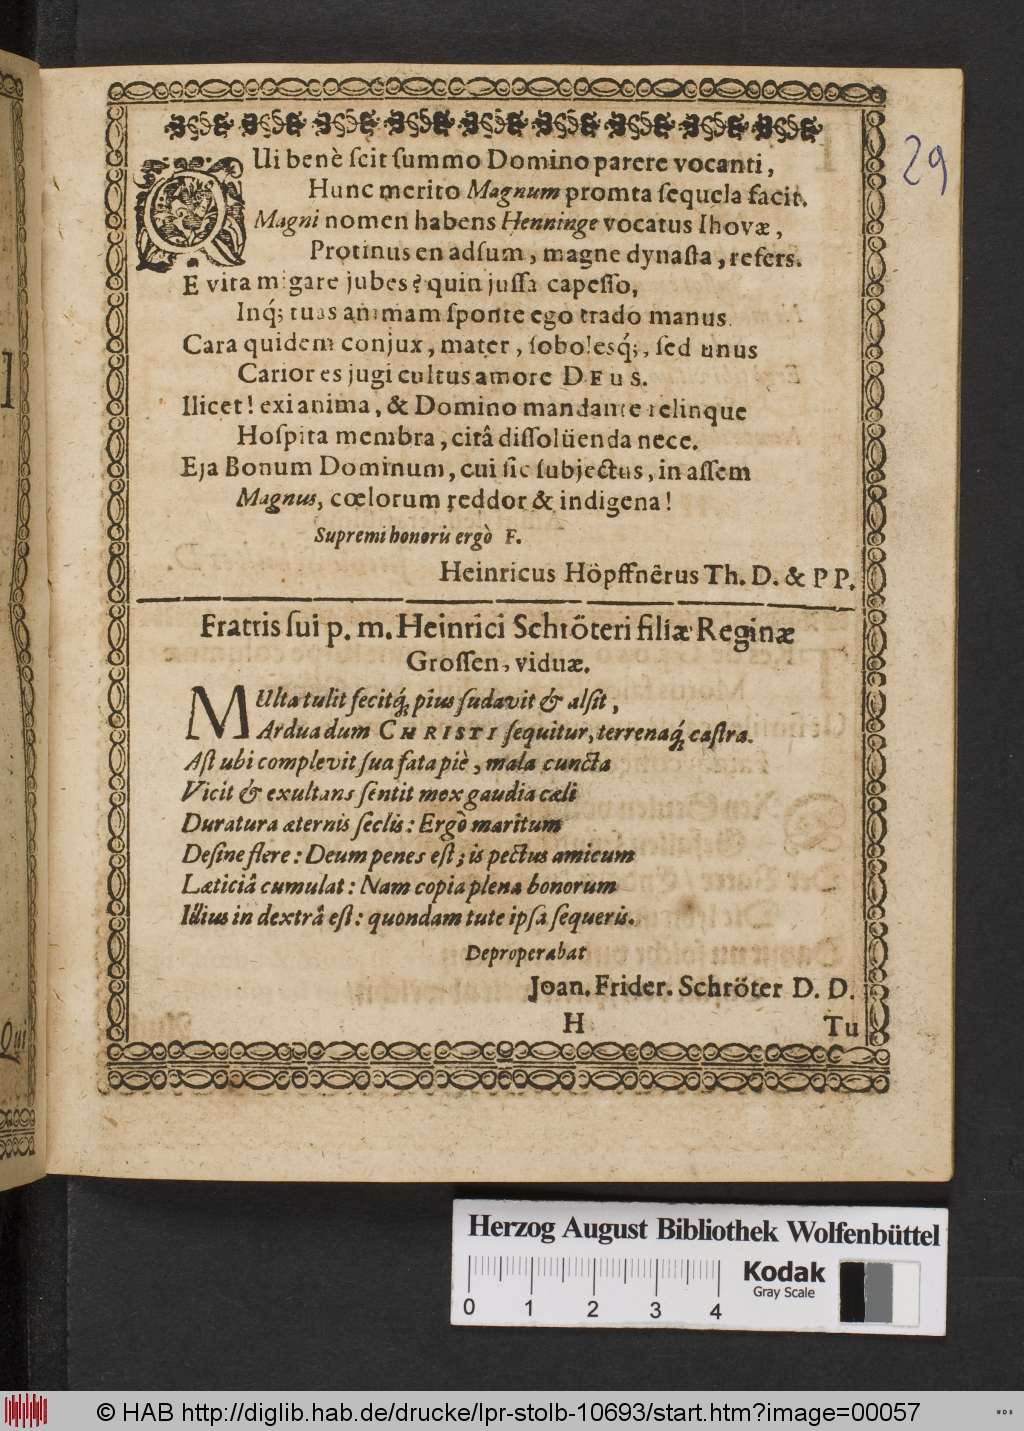 29
QUi benè scit summo Domino parere vocanti,
Hunc merito Magnum promta sequela facit.
Magni nomen habens Henninge vocatus Ihovæ,
Protinus en adsum, magne dynasta, refers.
E vita migare jubes? quin jussa capesso,
Inq́; tuas animam sponte ego trado manus.
Cara quidem conjux, mater, sobolesq́;, sed unus
Carior es jugi cultus amore DEUS.
Ilicet! exi anima, & Domino mandante relinque
Hospita membra, citâ dissolüenda nece.
Eja Bonum Dominum, cui sic subjectus, in assem
Magnus, cœlorum reddor & indigena!
Supremi honoris ergò F.
Heinricus Höpffnêrus Th. D. & P P.
Fratris sui p. m. Heinrici Schröteri filiæ Reginæ
Grossen, viduæ.
MUlta tulit fecitq́; pius sudavit & alsit,
Ardua dum CHRISTI sequitur, terrenaq́; castra.
Ast ubi complevit sua fata piè, mala cuncta
Vicit & exultans sentit mox gaudia cæli
Duratura æternis seclis: Ergò maritum
Desine flere: Deum penes est; is pectus amicum
Læticiâ cumulat: Nam copia plena bonorum
Illius in dextrâ est: quondam tute ipsa sequeris.
Deproperabat
Joan. Frider. Schröter D. D.
H
Tu
Qui
Herzog August Bibliothek Wolfenbüttel
0 1 2 3 4
Kodak
Gray Scale
© HAB http://diglib.hab.de/drucke/lpr-stolb-10693/start.htm?image=00057